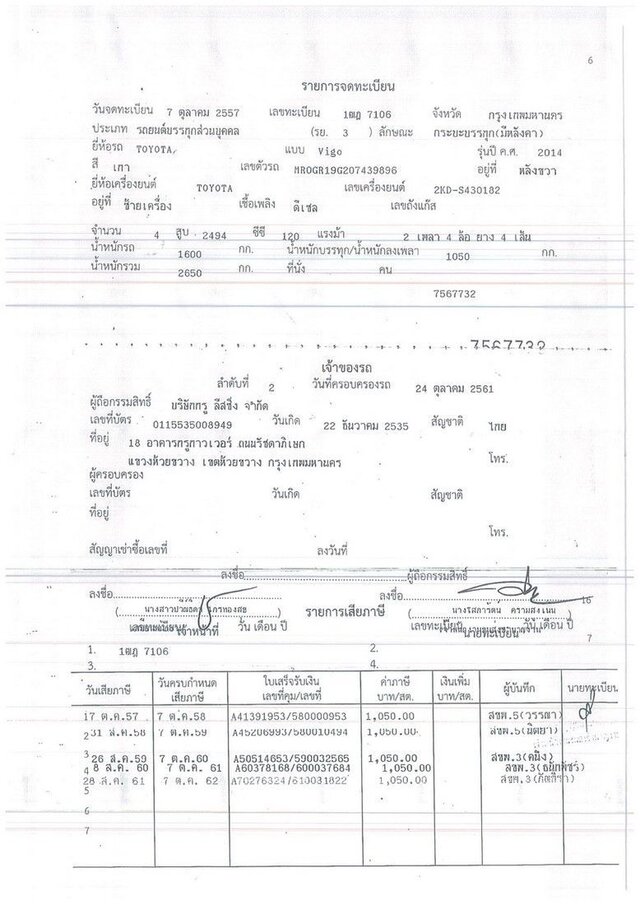 6
รายการจดทะเบียน
วันจดทะเบียน 7 ตุลาคม 2557 เลขทะเบียน 1ฒฎ 7106 จังหวัด กรุงเทพมหานคร
ประเภท รถยนต์บรรทุกส่วนบุคคล (รย. 3 ) ลักษณะ กระบะบรรทุก(มีหลังคา)
ยี่ห้อรถ TOYOTA, แบบ Vigo รุ่นปี ค.ศ. 2014
สี เทา เลขตัวรถ MROGR19G207439896 อยู่ที่ หลังขวา
ยี่ห้อเครื่องยนต์ TOYOTA เลขเครื่องยนต์ 2KD-S430182
อยู่ที่ ซ้ายเครื่อง เชื้อเพลิง ดีเซล เลขถังแก๊ส
จำนวน 4 สูบ 2494 ซีซี 120 แรงม้า 2 เพลา 4 ล้อ ยาง 4 เส้น
น้ำหนักรถ 1600 กก. น้ำหนักบรรทุก/น้ำหนักลงเพลา 1050 กก.
น้ำหนักรวม 2650 กก. ที่นั่ง คน
7567732
7567732
เจ้าของรถ
ลำดับที่ 2 วันที่ครอบครองรถ 24 ตุลาคม 2561
ผู้ถือกรรมสิทธิ์ บริษัทกรู ลีสซิ่ง จำกัด
เลขที่บัตร 0115535008949 วันเกิด 22 ธันวาคม 2535 สัญชาติ ไทย
ที่อยู่ 18 อาคารกรูทาวเวอร์ ถนนรัชดาภิเษก
แขวงห้วยขวาง เขตห้วยขวาง กรุงเทพมหานคร โทร.
ผู้ครอบครอง
เลขที่บัตร วันเกิด สัญชาติ
ที่อยู่
โทร.
สัญญาเช่าซื้อเลขที่ ลงวันที่
ลงชื่อ ผู้ถือกรรมสิทธิ์
ลงชื่อ ลงชื่อ 16
รายการเสียภาษี
เลขทะเบียน เจ้าหน้าที่ วัน เดือน ปี เลขทะเบียน นายทะเบียน วัน เดือน ปี
7
1. 1ฒฎ 7106 2.
3. 4.
วันเสียภาษี วันครบกำหนดเสียภาษี ใบเสร็จรับเงิน เลขที่คุม/เลขที่ ค่าภาษี บาท/สต. เงินเพิ่ม บาท/สต. ผู้บันทึก นายทะเบียน
17 ต.ค.57 7 ต.ค.58 A41391953/580000953 1,050.00 สขพ.5(วรรณา)
2 31 ส.ค.58 7 ต.ค.59 A45206993/580010494 1,050.00 สขพ.5(นิตยา)
3 26 ส.ค.59 7 ต.ค.60 A50514653/590032565 1,050.00 สขพ.3(คนึง)
4 8 ส.ค. 60 7 ต.ค. 61 A60378168/600037684 1,050.00 สขพ.3
28 ส.ค. 61 7 ต.ค. 62 A70276324/610031822 1,050.00 สขพ.3
5
6
7